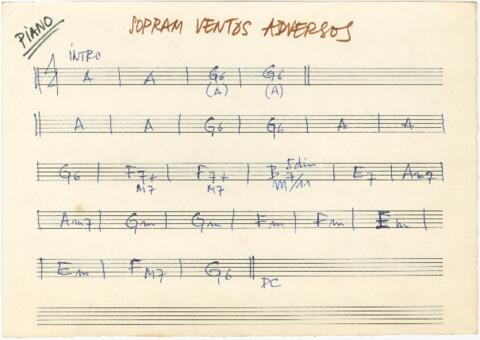 PIANO
SOPRAM VENTOS ADVERSOS
INTRO
4 A | A | G6 | G6 ||
(A) (A)
|| A | A | G6 | G6 | A | A |
G6 | F7+ | F7+ | B 5dim 7 | E7 | Am7 |
M7 M7 m/11
Am7 | Gm | Gm | Fm | Fm | Em |
Em | FM7 | G6 || DC